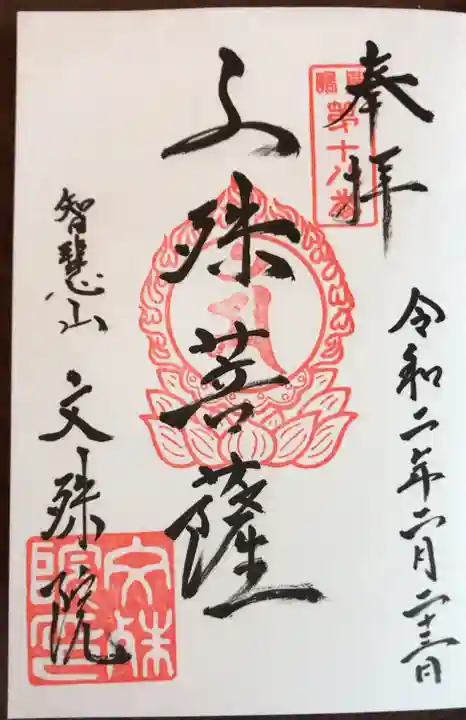 奉拝
第十八番
令和二年二月二十三日
文殊菩薩
智慧山 文殊院